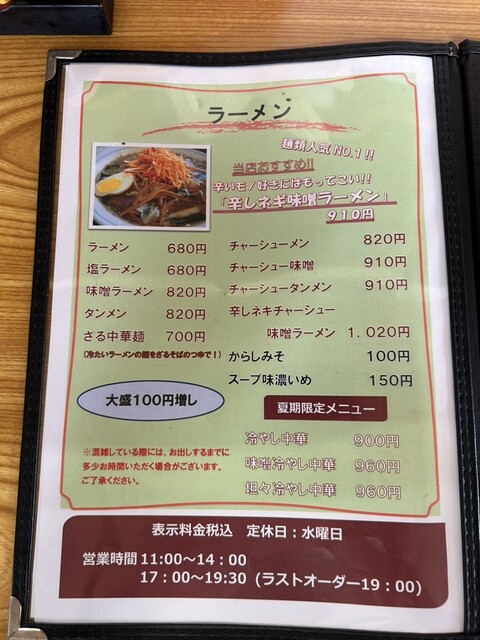 ラーメン
麺類人気NO.1!!
当店おすすめ!!
辛いモノ好きにはもってこい!!
「辛しネギ味噌ラーメン」
910円
ラーメン 680円
塩ラーメン 680円
味噌ラーメン 820円
タンメン 820円
ざる中華麺 700円
(冷たいラーメンの麺をざるそばのつゆで!)
大盛100円増し
※混雑している際には、お出しするまでに
多少お時間いただく場合がございます。
ご了承ください。
チャーシューメン 820円
チャーシュー味噌 910円
チャーシュータンメン 910円
辛しネキチャーシュー
味噌ラーメン 1.020円
からしみそ 100円
スープ味濃いめ 150円
夏期限定メニュー
冷やし中華 900円
味噌冷やし中華 960円
坦々冷やし中華 960円
表示料金税込 定休日:水曜日
営業時間 11:00〜14:00
17:00〜19:30 (ラストオーダー19:00)